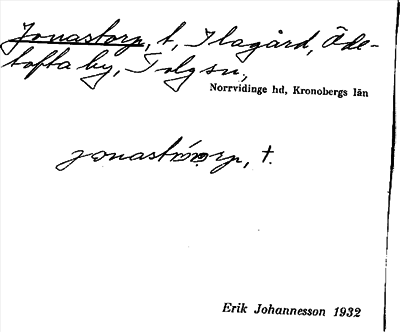 Jonastorp, t, Ilagård, Öde-
tofta by, Tolgs sn,
Norrvidinge hd, Kronobergs län
t.
Erik Johannesson 1932